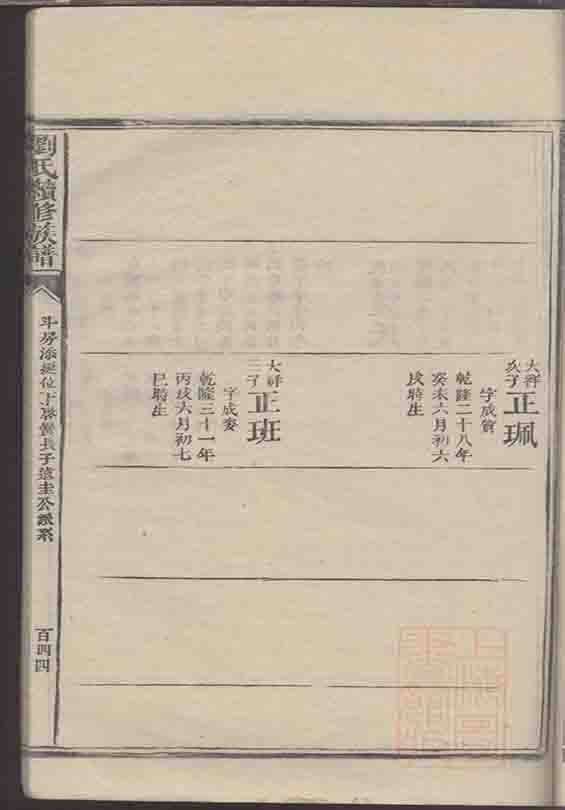 大祥
次子
正珮
字成賞
乾隆二十八年
癸未六月初六
戌時生
大祥
三子
正班
字成
乾隆三十一年
丙戌六月初七
巳時生
劉氏續修族譜
斗房添 位下 長子遠圭公派系
百四四